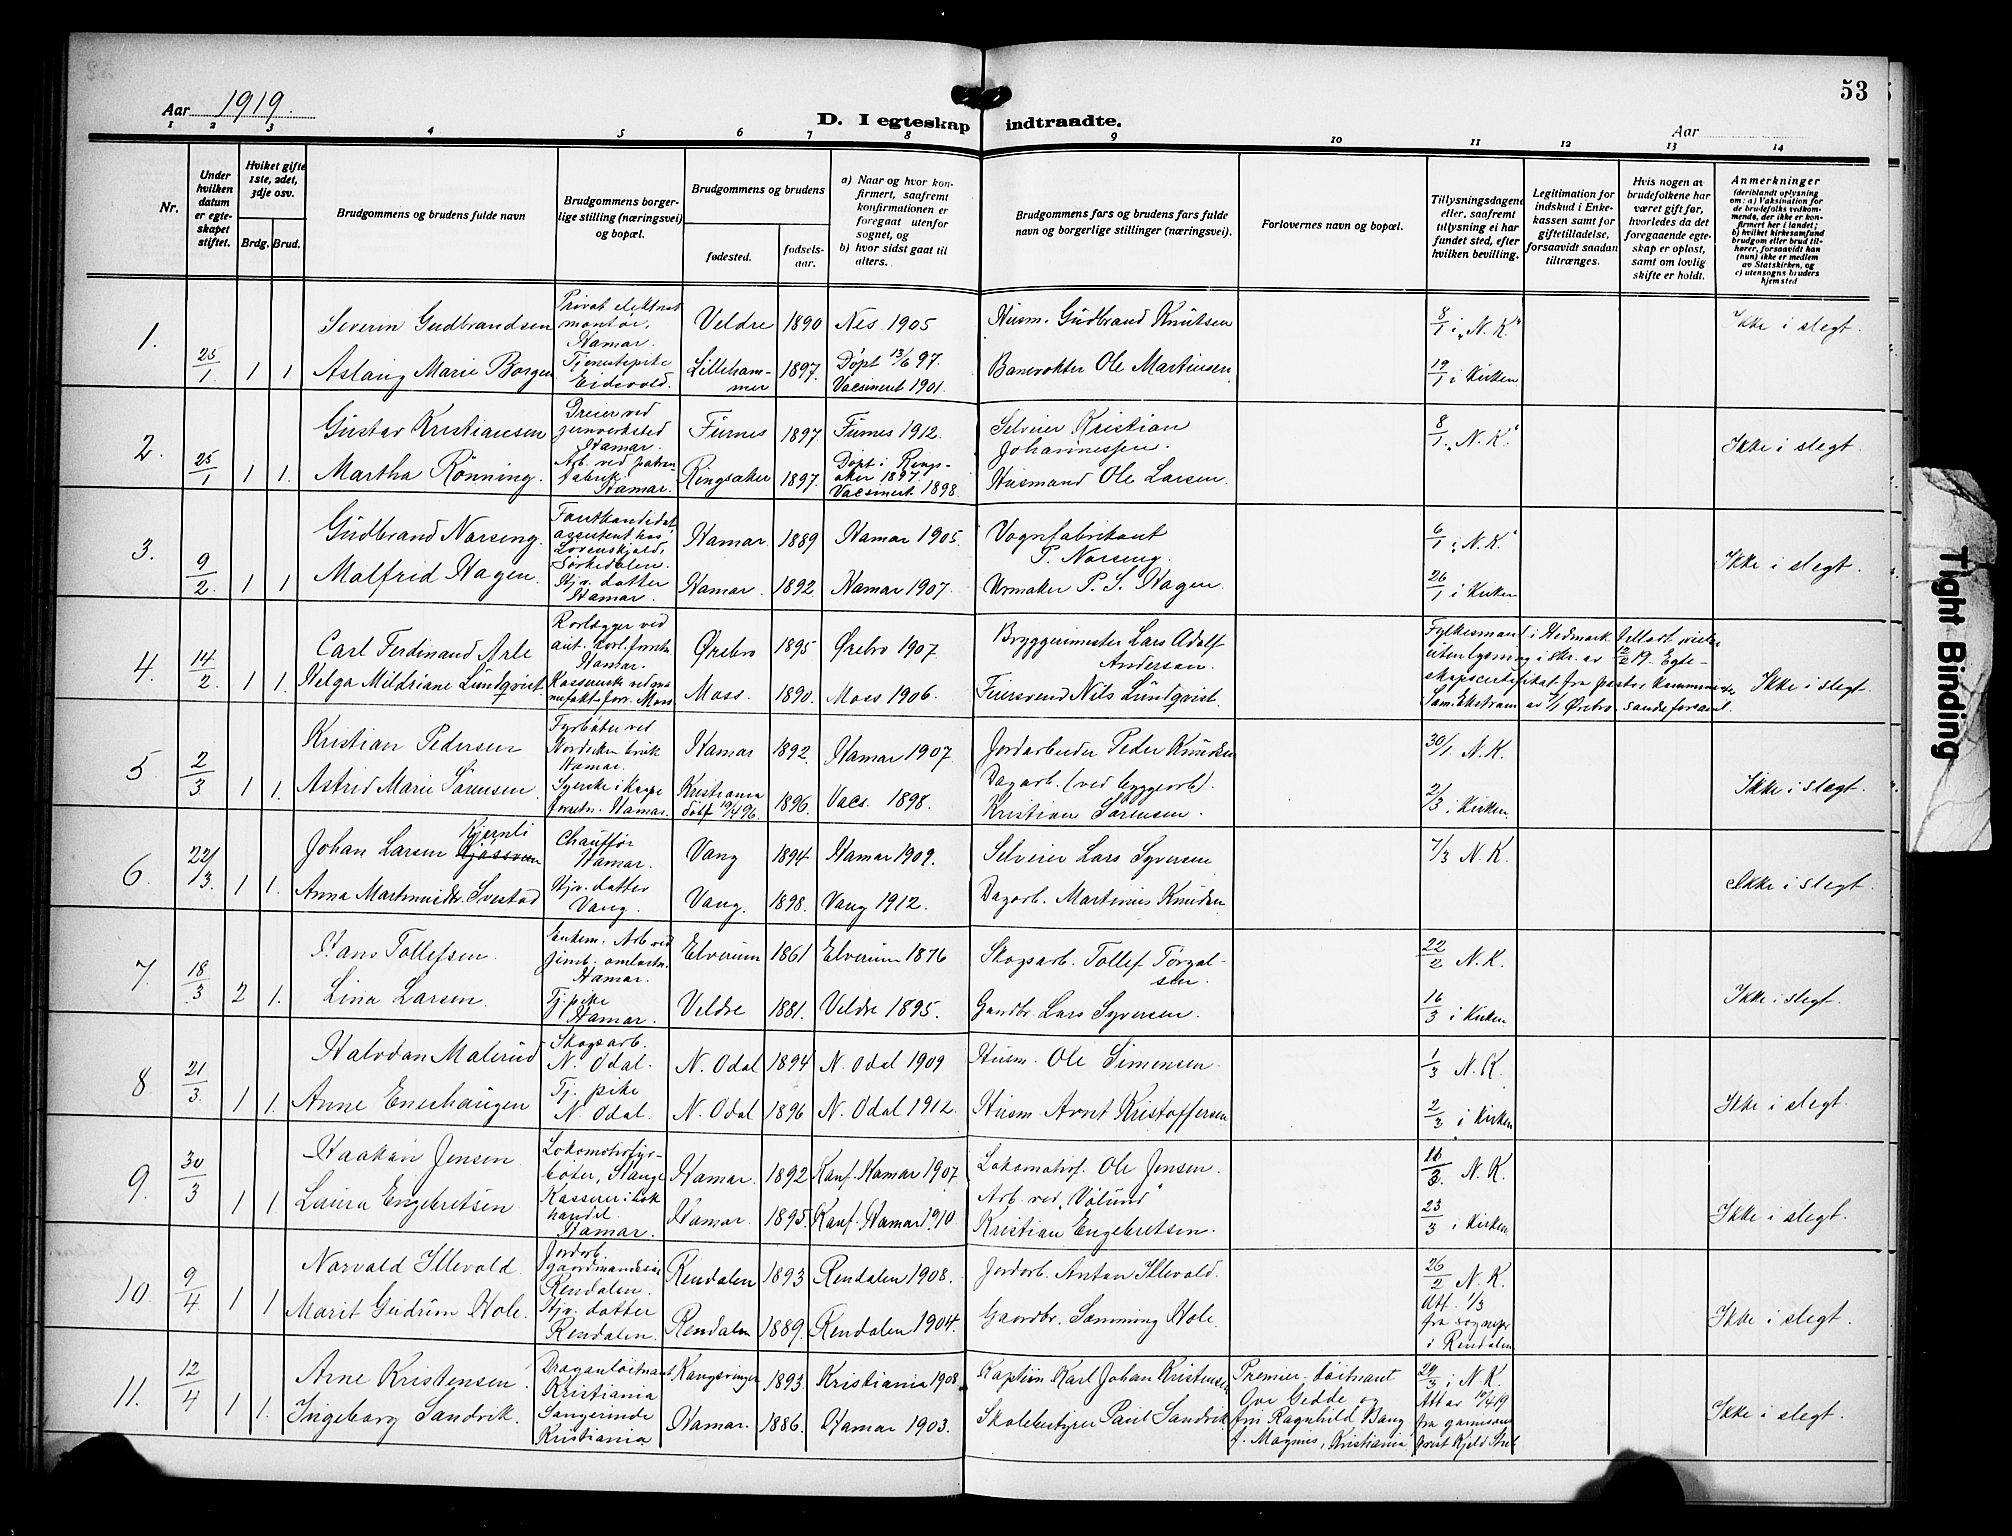 53
Aar 1919.
D. I egteskap indtraadte.
Aar
1 2 3 4 5 6 7 8 9 10 11 12 13 14
Nr.
Under hvilken datum er egteskapet stiftet.
Hviket gifte 1ste, 2det, 3dje osv.
Brdg. Brud.
Brudgommens og brudens fulde navn
Brudgommens borgerlige stilling (næringsvei) og bopæl.
Brudgommens og brudens
fødested.
fødselsaar.
a) Naar og hvor konfirmert, saafremt konfirmationen er foregaat utenfor sognet, og
b) hvor sidst gaat til alters.
Brudgommens fars og brudens fars fulde navn og borgerlige stillinger (næringsvei).
Forlovernes navn og bopæl.
Tillysningsdagene eller, saafremt tillysning ei har fundet sted, efter hvilken bevilling.
Legitimation for indskud i Enkekassen samt for giftetilladelse, forsaavidt saadan tiltrænges.
Hvis nogen av brudefolkene har været gift før, hvorledes da det foregaaende egteskap er opløst, samt om lovlig skifte er holdt.
Anmerkninger
(deriblandt oplysning om: a) Vaksination for de brudefolks vedkommende, der ikke er konfirmert her i landet; b) hvilket kirkesamfund brudgom eller brud tilhører, forsaavidt han (hun) ikke er medlem av Statskirken, og c) utensogns bruders hjemsted
1. 25/1 1 1
Severin Gudbrandsen Privat elektriat montør, Hamar. Veldre 1890 Nes 1905 Husm. Gudbrand Knutsen 8/1 i „N. K" Ikke i slegt.
Aslaug Marie Borgen Tjenestepike Eidsvold. Lillehammer 1897. Døpt 13/6 97. Vacsinert 1901. Banevokter Ole Martinsen 19/1 i Kirken
2. 25/1 1 1.
Gustav Kristiansen Dreier ved jernverksted Hamar. Furnes 1897. Furnes 1912. Selveier Kristian Johannessen. 8/1 „N. K." Ikke i slegt.
Martha Rønning. Arb. ved fabrik Hamar. Ringsaker 1897. Døpt i Ringsaker 1897. Vacsinert 1898. Husmand Ole Larsen.
3. 9/2 1 1
Gudbrand Narseng. Forstkandidat, assistent hos Løvenskjold, Sørkedalen. Hamar. 1889 Hamar 1905. Vognfabrikant P. Narseng. 6/1 i „N. K." Ikke i slegt.
Molfrid Hagen. Hjv. datter Hamar. Hamar. 1892. Hamar 1907. Urmaker P. S. Hagen. 26/1 i Kirken
4. 14/2 1 1.
Carl Ferdinand Arle Rørlægger ved aut. rørl. forretn. Hamar. Ørebro 1895 Ørebro 1907. Bryggerimester Lars Adolf Anderson. Fylkesmand i Hedmark 12/2 19. Egteskapscertifikat fra pastor Sam. Ekstram av 7/1 Ørebro. Ikke i slegt.
Helga Mildriane Lundqvist. Moss. 1890. Moss 1906. Feiersvend Nils Lundqvist.
5 2/3 1 1.
Kristian Pedersen Fyrbøter ved Nordseter bruk Hamar. Hamar 1892. Hamar 1907. Jordarbeider Peder Knudsen 30/1 N. K. Ikke i slegt.
Astrid Marie Sørensen. Syerske i Kaape forretn. Hamar. Kristiania født 19/4 96. 1896. Vacs. 1898. Dagarb. (ved byggearb). Kristian Sørensen. 2/3 i Kirken
6. 22/3. 1 1.
Johan Larsen Kjernli Chauffør Hamar. Vang 1894. Hamar 1909. Selveier Lars Syversen 7/3 N. K. Ikke i slegt.
Anna Svestad Hjv. datter Vang. Vang. 1898. Vang 1912. Dagarb. Martinius Knudsen
7. 18/3 2 1.
Hans Tollefsen. Enkem. Arb. ved jernb. omlastn. Hamar. Elverum 1861 Elverum 1876 Skogsarb. Tollef Torgalsen. 22/2 N. K. Ikke i slegt.
Lina Larsen. Tj. pike Hamar. Veldre 1881. Veldre 1895. Gaardbr. Lars Syversen. 16/3 i Kirken
8 21/3. 1 1.
Halvdan Malerud Skogsarb. N. Odal. N. Odal 1894 N. Odal 1909 Husm. Ole Simensen. 1/3 N. K. Ikke i slegt.
Anne Enerhaugen Tj. pike N. Odal. N. Odal 1896 N. Odal 1912. Husm. Arnt Kristoffersen 2/3 i Kirken
9. 30/3 1 1.
Haakon Jensen. Lokomotivfyrbøter, Stange Hamar. 1892 Konf. Hamar 1907. Lokomotivf. Ole Jensen. 16/3. N. K. Ikke i slegt.
Laura Engebretsen. Kasserer i bokhandel. Hamar. Hamar. 1895. Konf. Hamar 1910. Arb. ved „Vølund" Kristian Engebretsen. 23/3 i Kirken
10. 9/4 1 1
Norvald Illevold. Jordarb. Rendalen. Rendalen 1893 Rendalen 1908. Jordarb. Anton Illevold. 26/2 N. K. Ikke i slegt.
Marit Gudrun Hole. Hjv. datter Rendalen. Rendalen 1889. Rendalen 1904. Gaardbr. Hole. Att. 1/3 fra sognepr i Rendalen
11. 12/4 1 1.
Arne Kristensen. Dragonløitnant Kristiania Kongsvinger 1893. Kristiania 1908. Kaptein Karl Johan Kristensen Premier-løitnant Ove Gedde og frk Ragnhild Bang f. Magnus, Kristiania 24/3 i N. K. Ikke i slegt.
Ingeborg Sandvik. Sangerinde Kristiania Hamar. 1886. Hamar 1903. Skolebestyrer Paul Sandvik Att av 10/4 19 fra garnisonsprest Kjeld Stub
Tight Binding